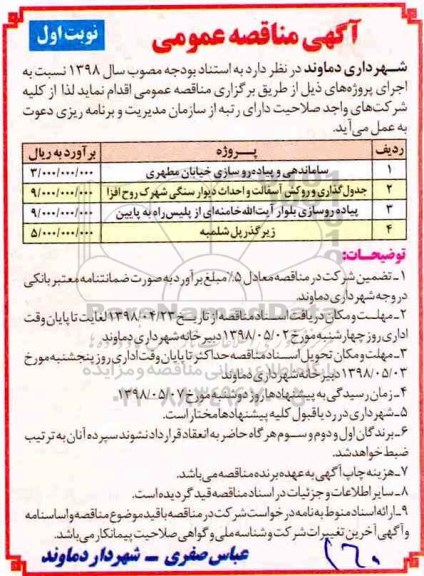 آگهی مناقصه عمومی
نوبت اول
شهرداری دماوند در نظر دارد به استناد بودجه مصوب سال ۱۳۹۸ نسبت به
اجرای پروژه‌های ذیل از طریق برگزاری مناقصه عمومی اقدام نماید لذا از کلیه
شرکت‌های واجد صلاحیت دارای رتبه از سازمان مدیریت و برنامه ریزی دعوت
به عمل می‌آید.
ردیف پـــروژه برآورد به ریال
۱ ساماندهی و پیاده‌رو سازی خیابان مطهری ۳/۰۰۰/۰۰۰/۰۰۰
۲ جدول‌گذاری و روکش آسفالت و احداث دیوار سنگی شهرک روح افزا ۹/۰۰۰/۰۰۰/۰۰۰
۳ پیاده روسازی بلوار آیت‌الله خامنه‌ای از پلیس راه به پایین ۹/۰۰۰/۰۰۰/۰۰۰
۴ زیرگذر پل شلمبه ۵/۰۰۰/۰۰۰/۰۰۰
توضیحات:
۱ـ تضمین شرکت در مناقصه معادل ۵٪ مبلغ برآورد به صورت ضمانتنامه معتبر بانکی
در وجه شهرداری دماوند.
۲ـ مهلت و مکان دریافت اسناد مناقصه از تاریخ ۱۳۹۸/۰۴/۲۳ لغایت تا پایان وقت
اداری روز چهارشنبه مورخ ۱۳۹۸/۰۵/۰۲ دبیرخانه شهرداری دماوند
۳ـ مهلت و مکان تحویل اسناد مناقصه حداکثر تا پایان وقت اداری روز پنجشنبه مورخ
۱۳۹۸/۰۵/۰۳ دبیرخانه شهرداری دماوند
۴ـ زمان رسیدگی به پیشنهادها روز دوشنبه مورخ ۱۳۹۸/۰۵/۰۷
۵ـ شهرداری در رد یا قبول کلیه پیشنهادها مختار است.
۶ـ برندگان اول و دوم و سوم هرگاه حاضر به انعقاد قرارداد نشوند سپرده آنان به ترتیب
ضبط خواهد شد.
۷ـ هزینه چاپ آگهی به عهده برنده مناقصه می‌باشد.
۸ـ سایر اطلاعات و جزئیات در اسناد مناقصه قید گردیده است.
۹ـ ارائه اسناد منوط به نامه درخواست شرکت در مناقصه با قید موضوع مناقصه و اساسنامه
و آگهی آخرین تغییرات شرکت و شناسه ملی و گواهی صلاحیت پیمانکار می‌باشد.
عباس صفری – شهردار دماوند